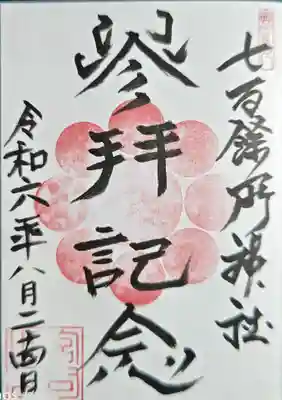 七百餘所神社
參拜記念
令和六年八月二十四日